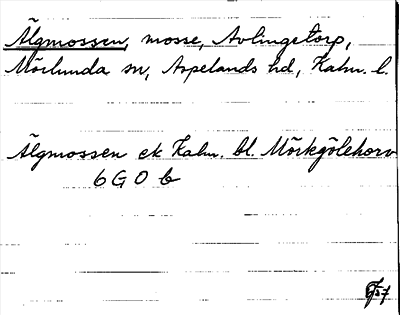 Älgmossen, mosse, Avlingetorp,
Mörlunda sn, Aspelands hd, Kalm. l.
Älgmossen ek Kalm. bl. Mörkgölehorv
6 G 0 b